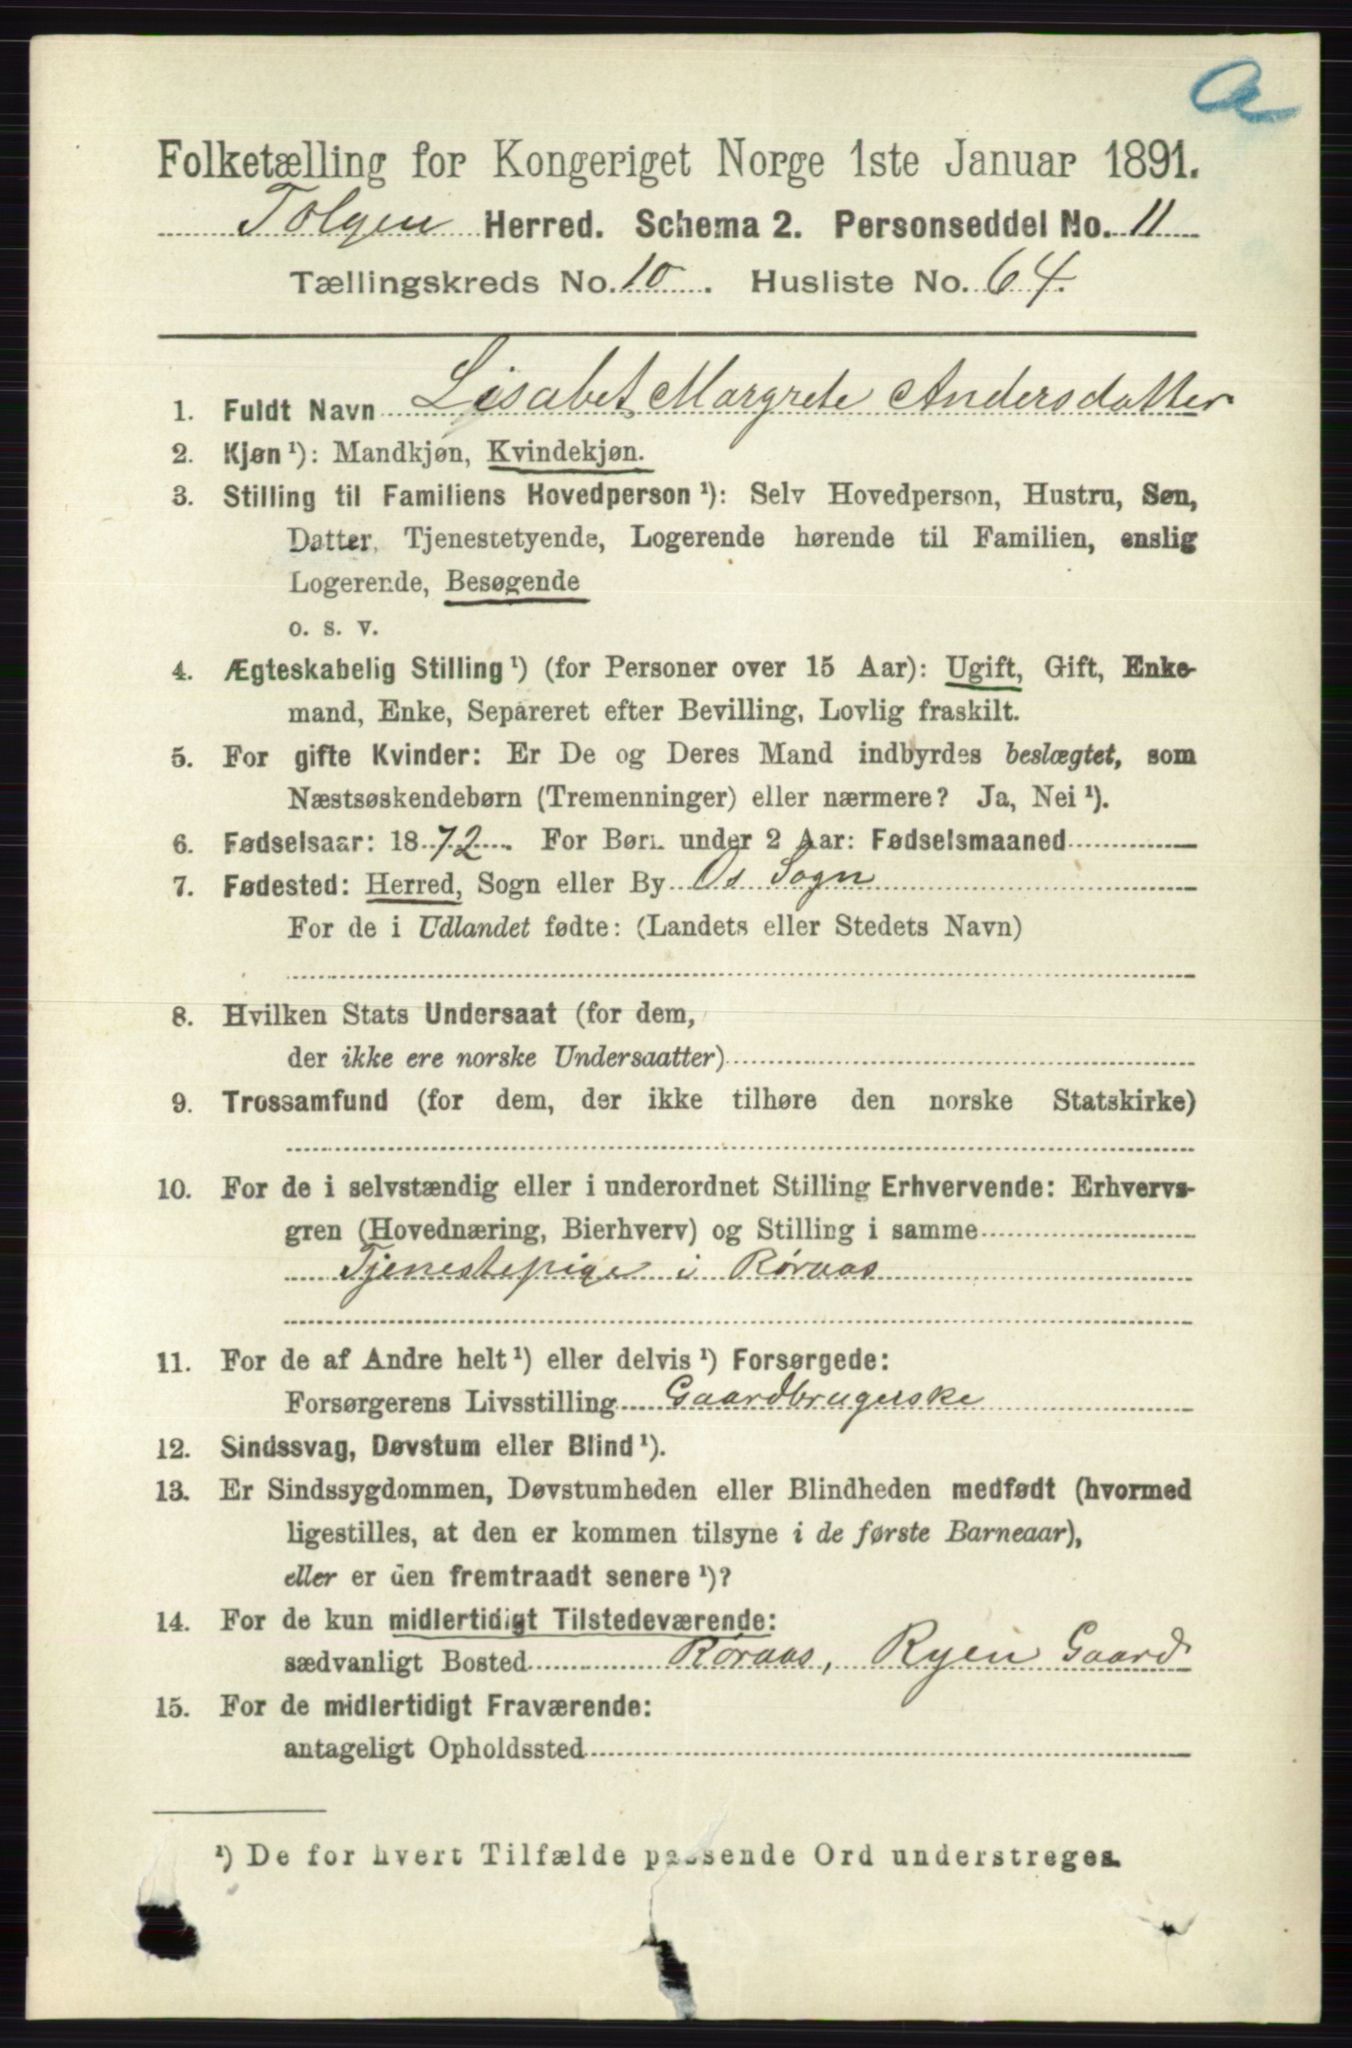 a
Folketælling for Kongeriget Norge 1ste Januar 1891.
Tolgen Herred. Schema 2. Personseddel No. 11
Tællingskreds No. 10. Husliste No. 64.
1. Fuldt Navn Lisabet Margrete Andersdatter
2. Kjøn ¹): Mandkjøn, Kvindekjøn.
3. Stilling til Familiens Hovedperson ¹): Selv Hovedperson, Hustru, Søn,
Datter, Tjenestetyende, Logerende hørende til Familien, enslig
Logerende, Besøgende
o. s. v.
4. Ægteskabelig Stilling ¹) (for Personer over 15 Aar): Ugift, Gift, Enke-
mand, Enke, Separeret efter Bevilling, Lovlig fraskilt.
5. For gifte Kvinder: Er De og Deres Mand indbyrdes beslægtet, som
Næstsøskendebørn (Tremenninger) eller nærmere? Ja, Nei ¹).
6. Fødselsaar: 1872. For Børn under 2 Aar: Fødselsmaaned
7. Fødested: Herred, Sogn eller By Os Sogn
For de i Udlandet fødte: (Landets eller Stedets Navn)
8. Hvilken Stats Undersaat (for dem,
der ikke ere norske Undersaatter)
9. Trossamfund (for dem, der ikke tilhøre den norske Statskirke)
10. For de i selvstændig eller i underordnet Stilling Erhvervende: Erhvervs-
gren (Hovednæring, Bierhverv) og Stilling i samme
Tjenestepige i Røraas
11. For de af Andre helt ¹) eller delvis ¹) Forsørgede:
Forsørgerens Livsstilling Gaardbrugerske
12. Sindssvag, Døvstum eller Blind ¹).
13. Er Sindssygdommen, Døvstumheden eller Blindheden medfødt (hvormed
ligestilles, at den er kommen tilsyne i de første Barneaar),
eller er den fremtraadt senere ¹)?
14. For de kun midlertidigt Tilstedeværende:
sædvanligt Bosted Røraas, Ryen Gaard
15. For de midlertidigt Fraværende:
antageligt Opholdssted
¹) De for hvert Tilfælde passende Ord understreges.